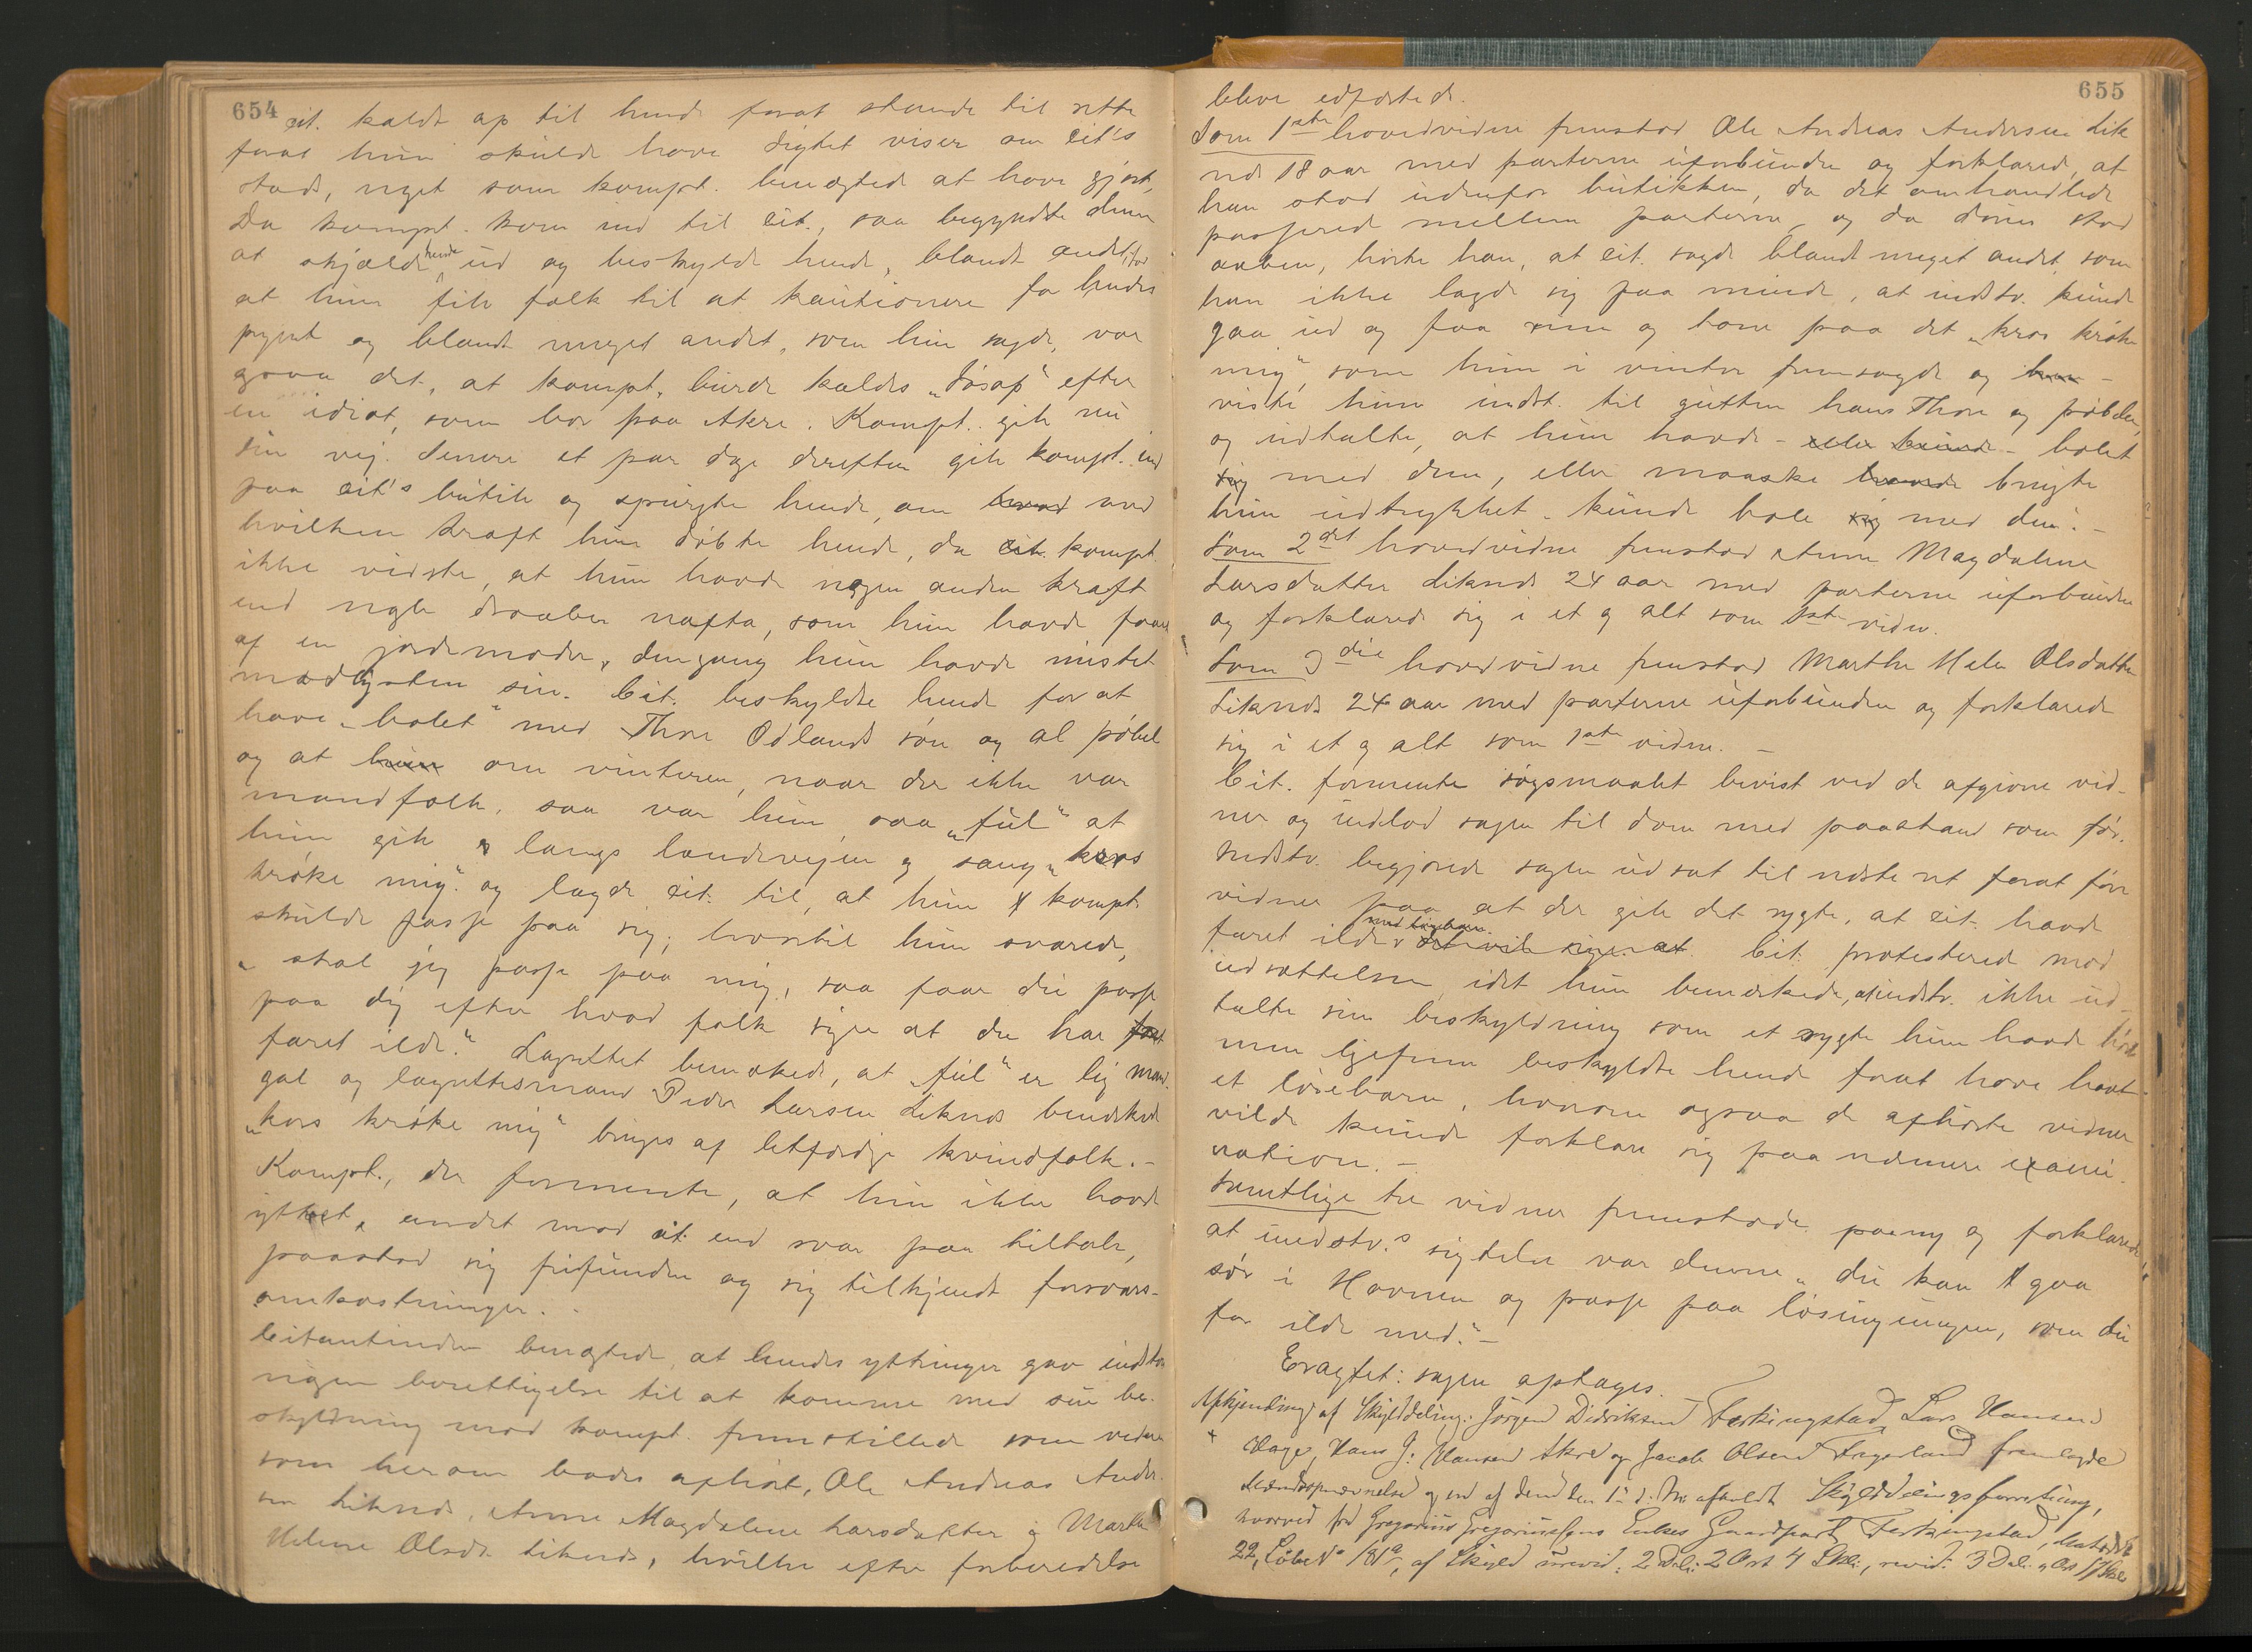 654
cit. kaldt op til hende forat stande til rette
forat hun skulde have digtet viser om cit's
stads, noget som kompt. benægtede at have gjort,
Da kompt. kom ind til cit., saa begyndte denne
at skjælde hende ud og beskylde hende, blandt andet for
at hun fik folk til at kautionere for hendes
pynt og blandt meget andet, som hun sagde, var
det, at kompt. burde kaldes „Jósap“ efter
en idiot, som bor paa Akre. Kompt. gik nu
sin vej. Senere et par dage derefter gik kompt. ind
paa cit's butik og spurgte hende, om hvad ved
hvilken kraft hun döbte hende, da cit. kompt.
ikke vidste, at hun havde nogen anden kraft
end nogle draaber nafta, som hun havde faaet
af en jordemoder, dengang hun havde mistet
madlysten sin. Cit. beskyldte hende for at
have „bolet“ med Thore Odlands sön og al pöbel
og at hun om vinteren, naar der ikke var
mandfolk, saa var hun saa „ful“ at
hun gik langs landevejen og sang „kors
kröke mig“. og lagde cit. til, at hun kompt.
skulde passe paa sig; hvortil hun svarede,
„skal jeg passe paa mig, saa faar du passe
paa dig efter hvad folk siger at du har
faret ilde.“ Lagrettet bemærkede, at „ful“ er lig mand-
gal og lagrettesmand Peder Larsen Liknes bemærkede
„kors kröke mig“ bruges af letfærdige kvindfolk.-
Kompt., der formente, at hun ikke havde
yttret andet mod cit. end svar paa tiltale,
paastod sig frifunden og sig tilkjendt forsvars-
omkostninger.
Citantinden benægtede, at hendes yttringer gav indstv.
nogen berettigelse til at komme med sin be-
skyldning mod kompt. fremstillede som vidner
som herom bades afhört, Ole Andreas Ander-
sen Liknes, Anne Magdalene Larsdatter og Marthe
Helene Olsdr. Liknes, hvilke efter forberedelse
655
bleve edfæstede.
Som 1ste hovedvidne fremstod Ole Andreas Andersen Lik
nes 18 aar med parterne uforbunden og forklarede, at
han stod udenfor butikken, da det omhandlede
passerede mellem parterne, og da dören stod
aaben, hörte han, at cit. sagde blandt meget andet, som
han ikke lagde sig paa minde, at indstv. kunde
gaa ud og faa paa det „kros kröke
mig“, som hun i vinter fremsagde og han -
viste hun indst. til gutten hans Thore og pöbelen,
og udtalte, at hun havde - eller kunde - bolet
sig med dem, eller maaske havde brugte
hun udtrykket - kunde bole sig med dem. -
Som 2det hovedvidne fremstod Anne Magdalene
Larsdatter Liknes 24 aar med parterne uforbunden
og forklarede sig i et og alt som 1ste vidne.
Som 3die hovedvidne fremstod Marthe Helene Olsdatter
Liknes 24 aar med parterne uforbunden og forklarede
sig i et og alt som 1ste vidne. -
Cit. formente sögsmaalet bevist ved de afgivne vid-
ner og indlod sagen til dom med paastand som för.
Indstv. begjerede sagen udsat til næste ret forat före
vidner paa at der gik det rygte, at cit. havde
faret ilde det vil sige at Cit. protesterede mod
udsættelsen, idet hun bemærkede, at indstv. ikke ud-
talte sin beskyldning som et rygte hun havde hört
men ligefrem beskyldte hende forat have havt
et lösebarn, hvorom ogsaa de afhörte vidner
vilde kunde forklare sig paa nærmere exami-
nation. -
Samtlige tre vidner fremstode paany og forklarede,
at indstv.s sigtelse var denne „du kan gaa
sör i Havnen og passe paa lösingungen, som du
for ilde med.“-
Eragtet: sagen optages. -
Afkjending af Skylddeling: Jörgen Didriksen Ferkingstad, Lars Hansen
Hage, Hans J. Hansen Akre og Jacob Olsen Fagerland fremlagde
og en af dem den 1 d: M: afholdt Skylddelingsforretning,
hvorved fra Gregorius Gregoriussens Enkes Gaardpart Ferkingstad, Matr. No
22, Löbe No 181a, af Skyld urevid: 2 Dal: 2 Ort 4 Skil:, revid: 3 Dal. Ort 17 Skil